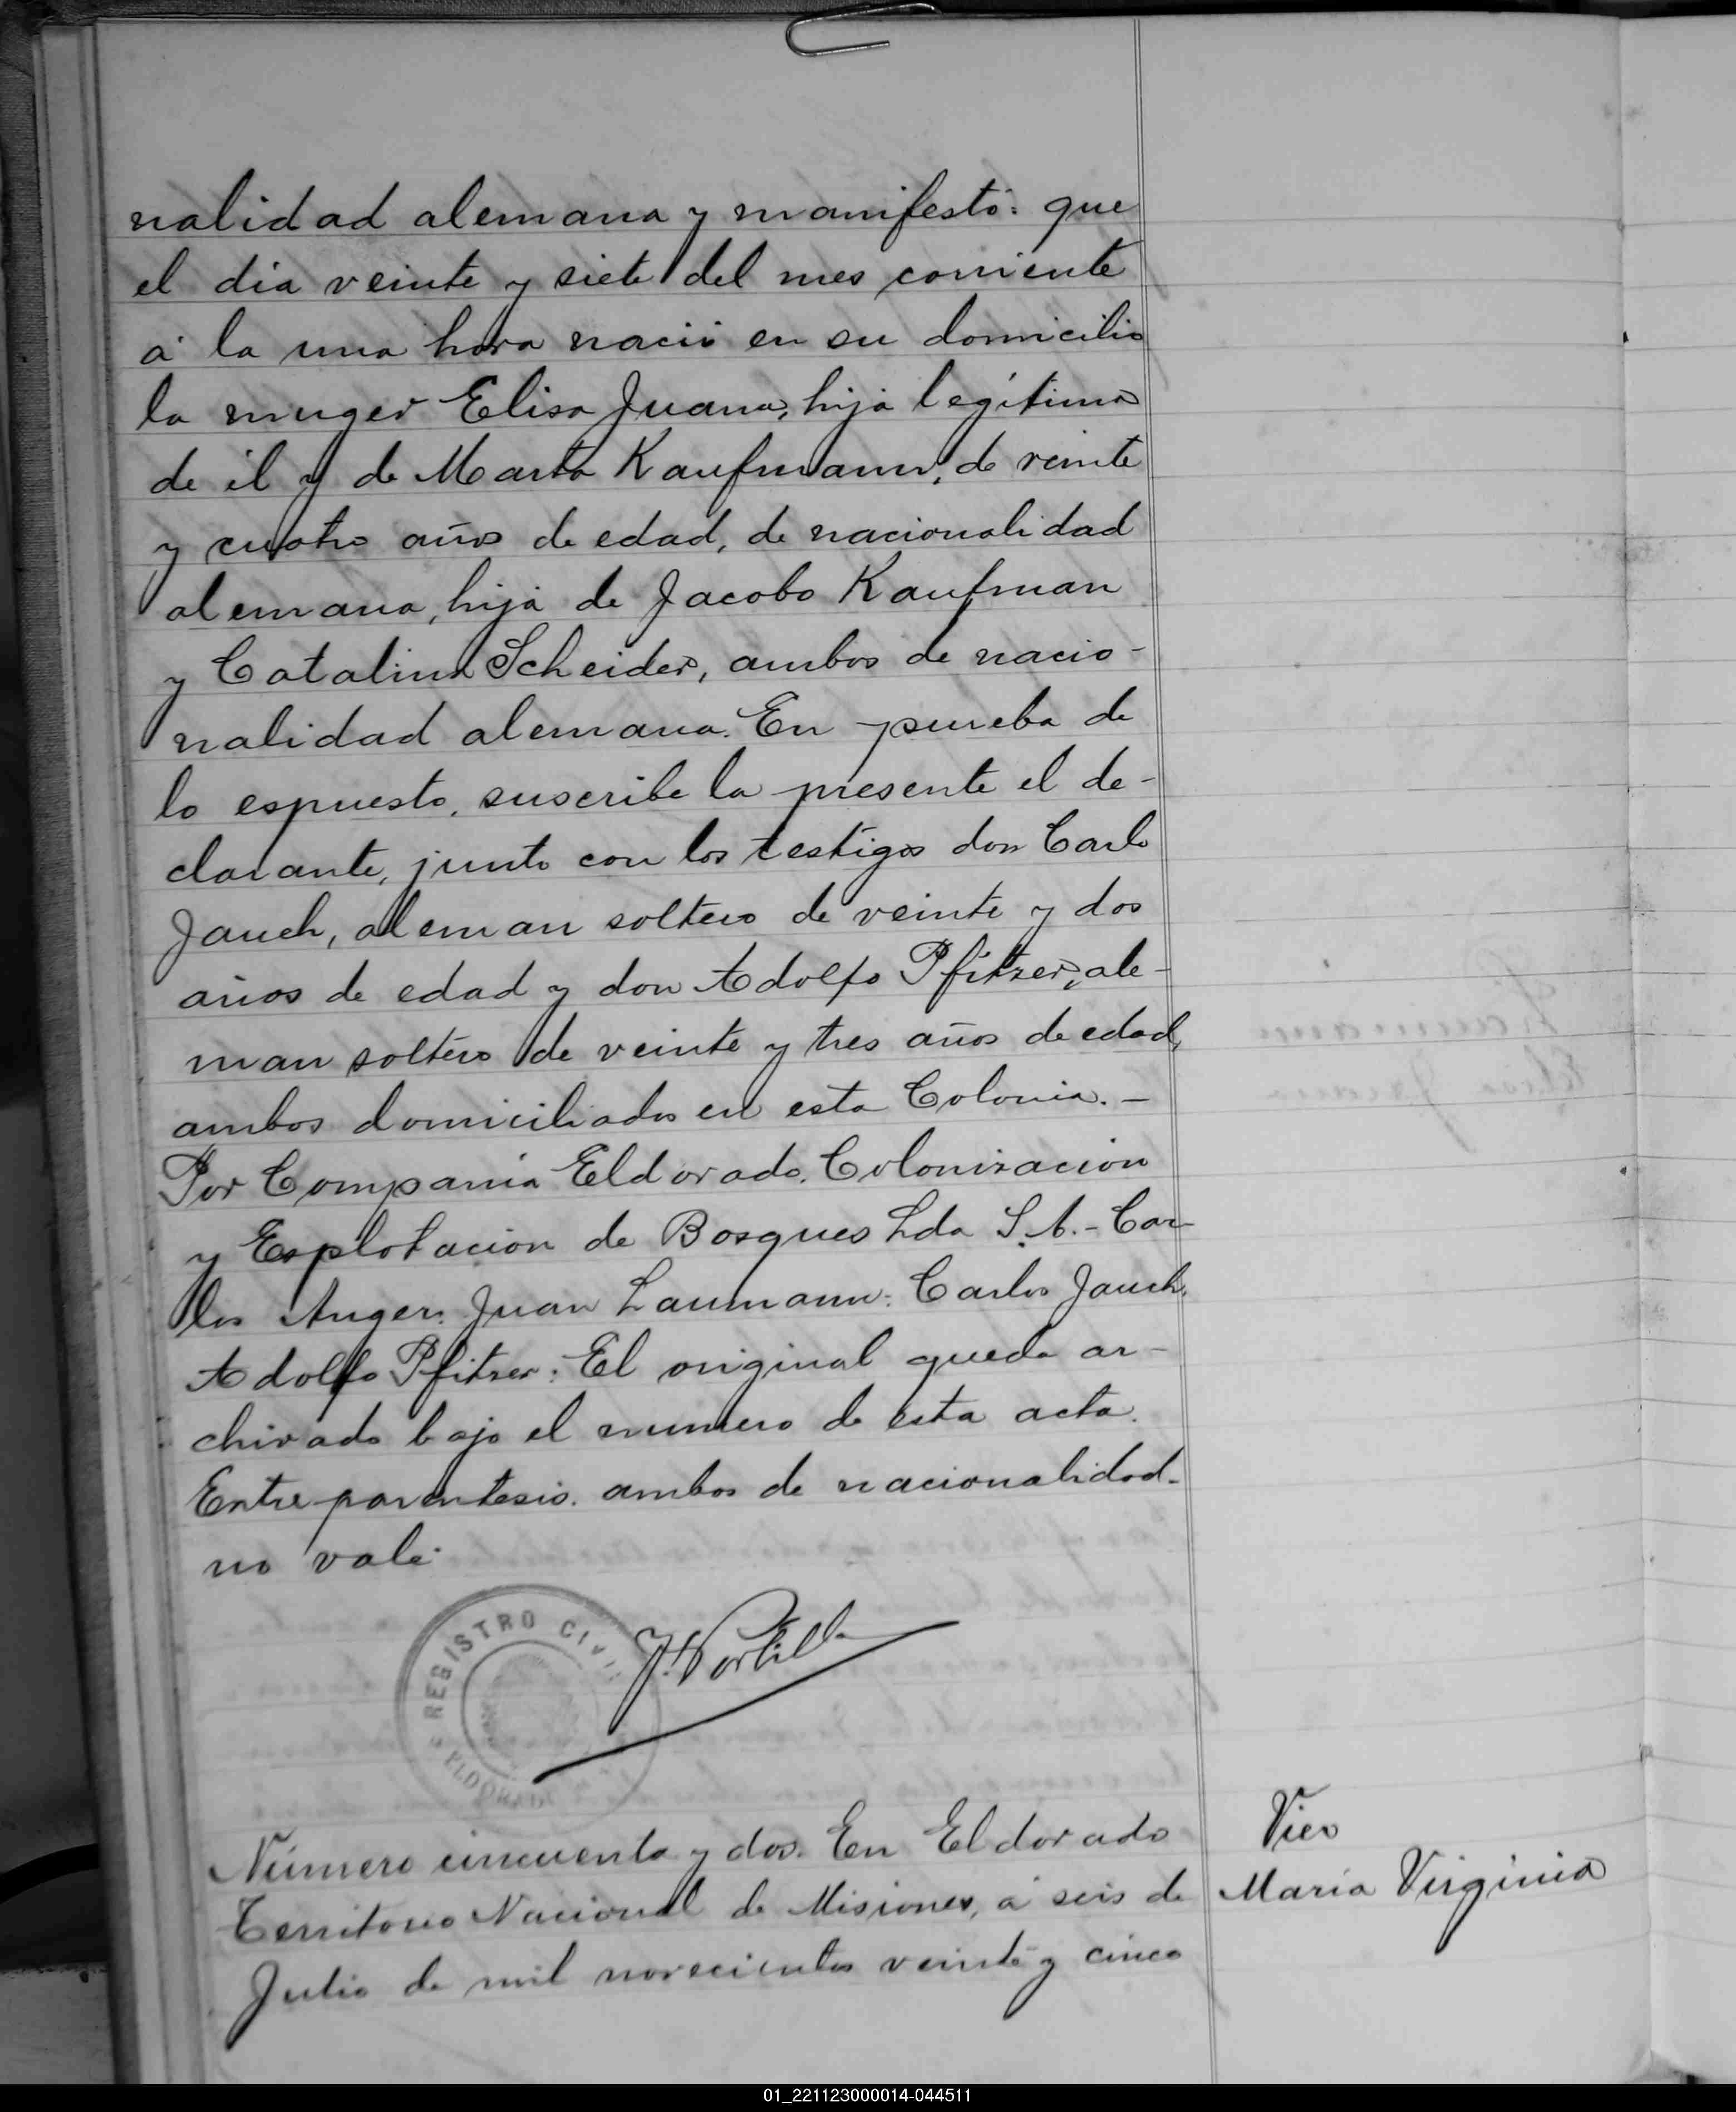 nalidad alemana y manifestó: que
el dia veinte y siete del mes corriente
á la una hora nació en su domicilio
la muger Elisa Juana, hija legítima
de él y de Marta Kaufmann, de veinte
y cuatro años de edad, de nacionalidad
alemana, hija de Jacobo Kaufman
y Catalina Scheider, ambos de nacio-
nalidad alemana. En prueba de
lo espuesto, suscribe la presente el de-
clarante, junto con los testigos don Carlo
Jauch, aleman soltero de veinte y dos
años de edad y don Adolfo Pfitzer, ale-
man soltero de veinte y tres años de edad,
ambos domiciliados en esta Colonia. -
Por Compania Eldorado, Colonizacion
y Esplotacion de Bosques Lda S.A. - Car-
los Auger. Juan Laumann: Carlos Jauch.
Adolfo Pfitzer: El original queda ar-
chivado bajo el numero de esta acta.
Entre parentesis. ambos de nacionalidad.
no vale.
REGISTRO CIVIL
ELDORADO
J. Portillo
Número cincuenta y dos. En Eldorado
Territorio Nacional de Misiones, á seis de
Julio de mil novecientos veinte y cinco
Vier
Maria Virginia
01_221123000014-044511